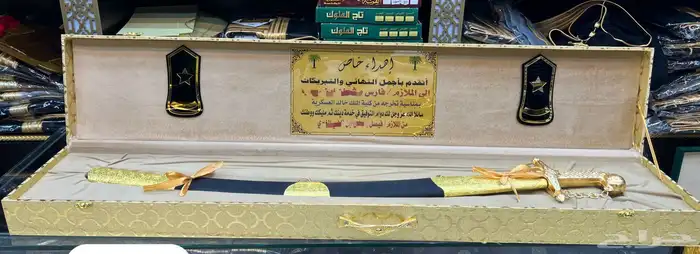 تاج الملوك
تاج الملوك
إهداء خاص
أتقدم بأجمل التهاني والتبريكات
إلى الملازم / فارس
بمناسبة تخرجك من كلية الملك خالد العسكرية
سائلاً الله عز وجل لك دوام التوفيق في خدمة دينك ثم مليكك ووطنك
من الملازم / فيصل
حراج